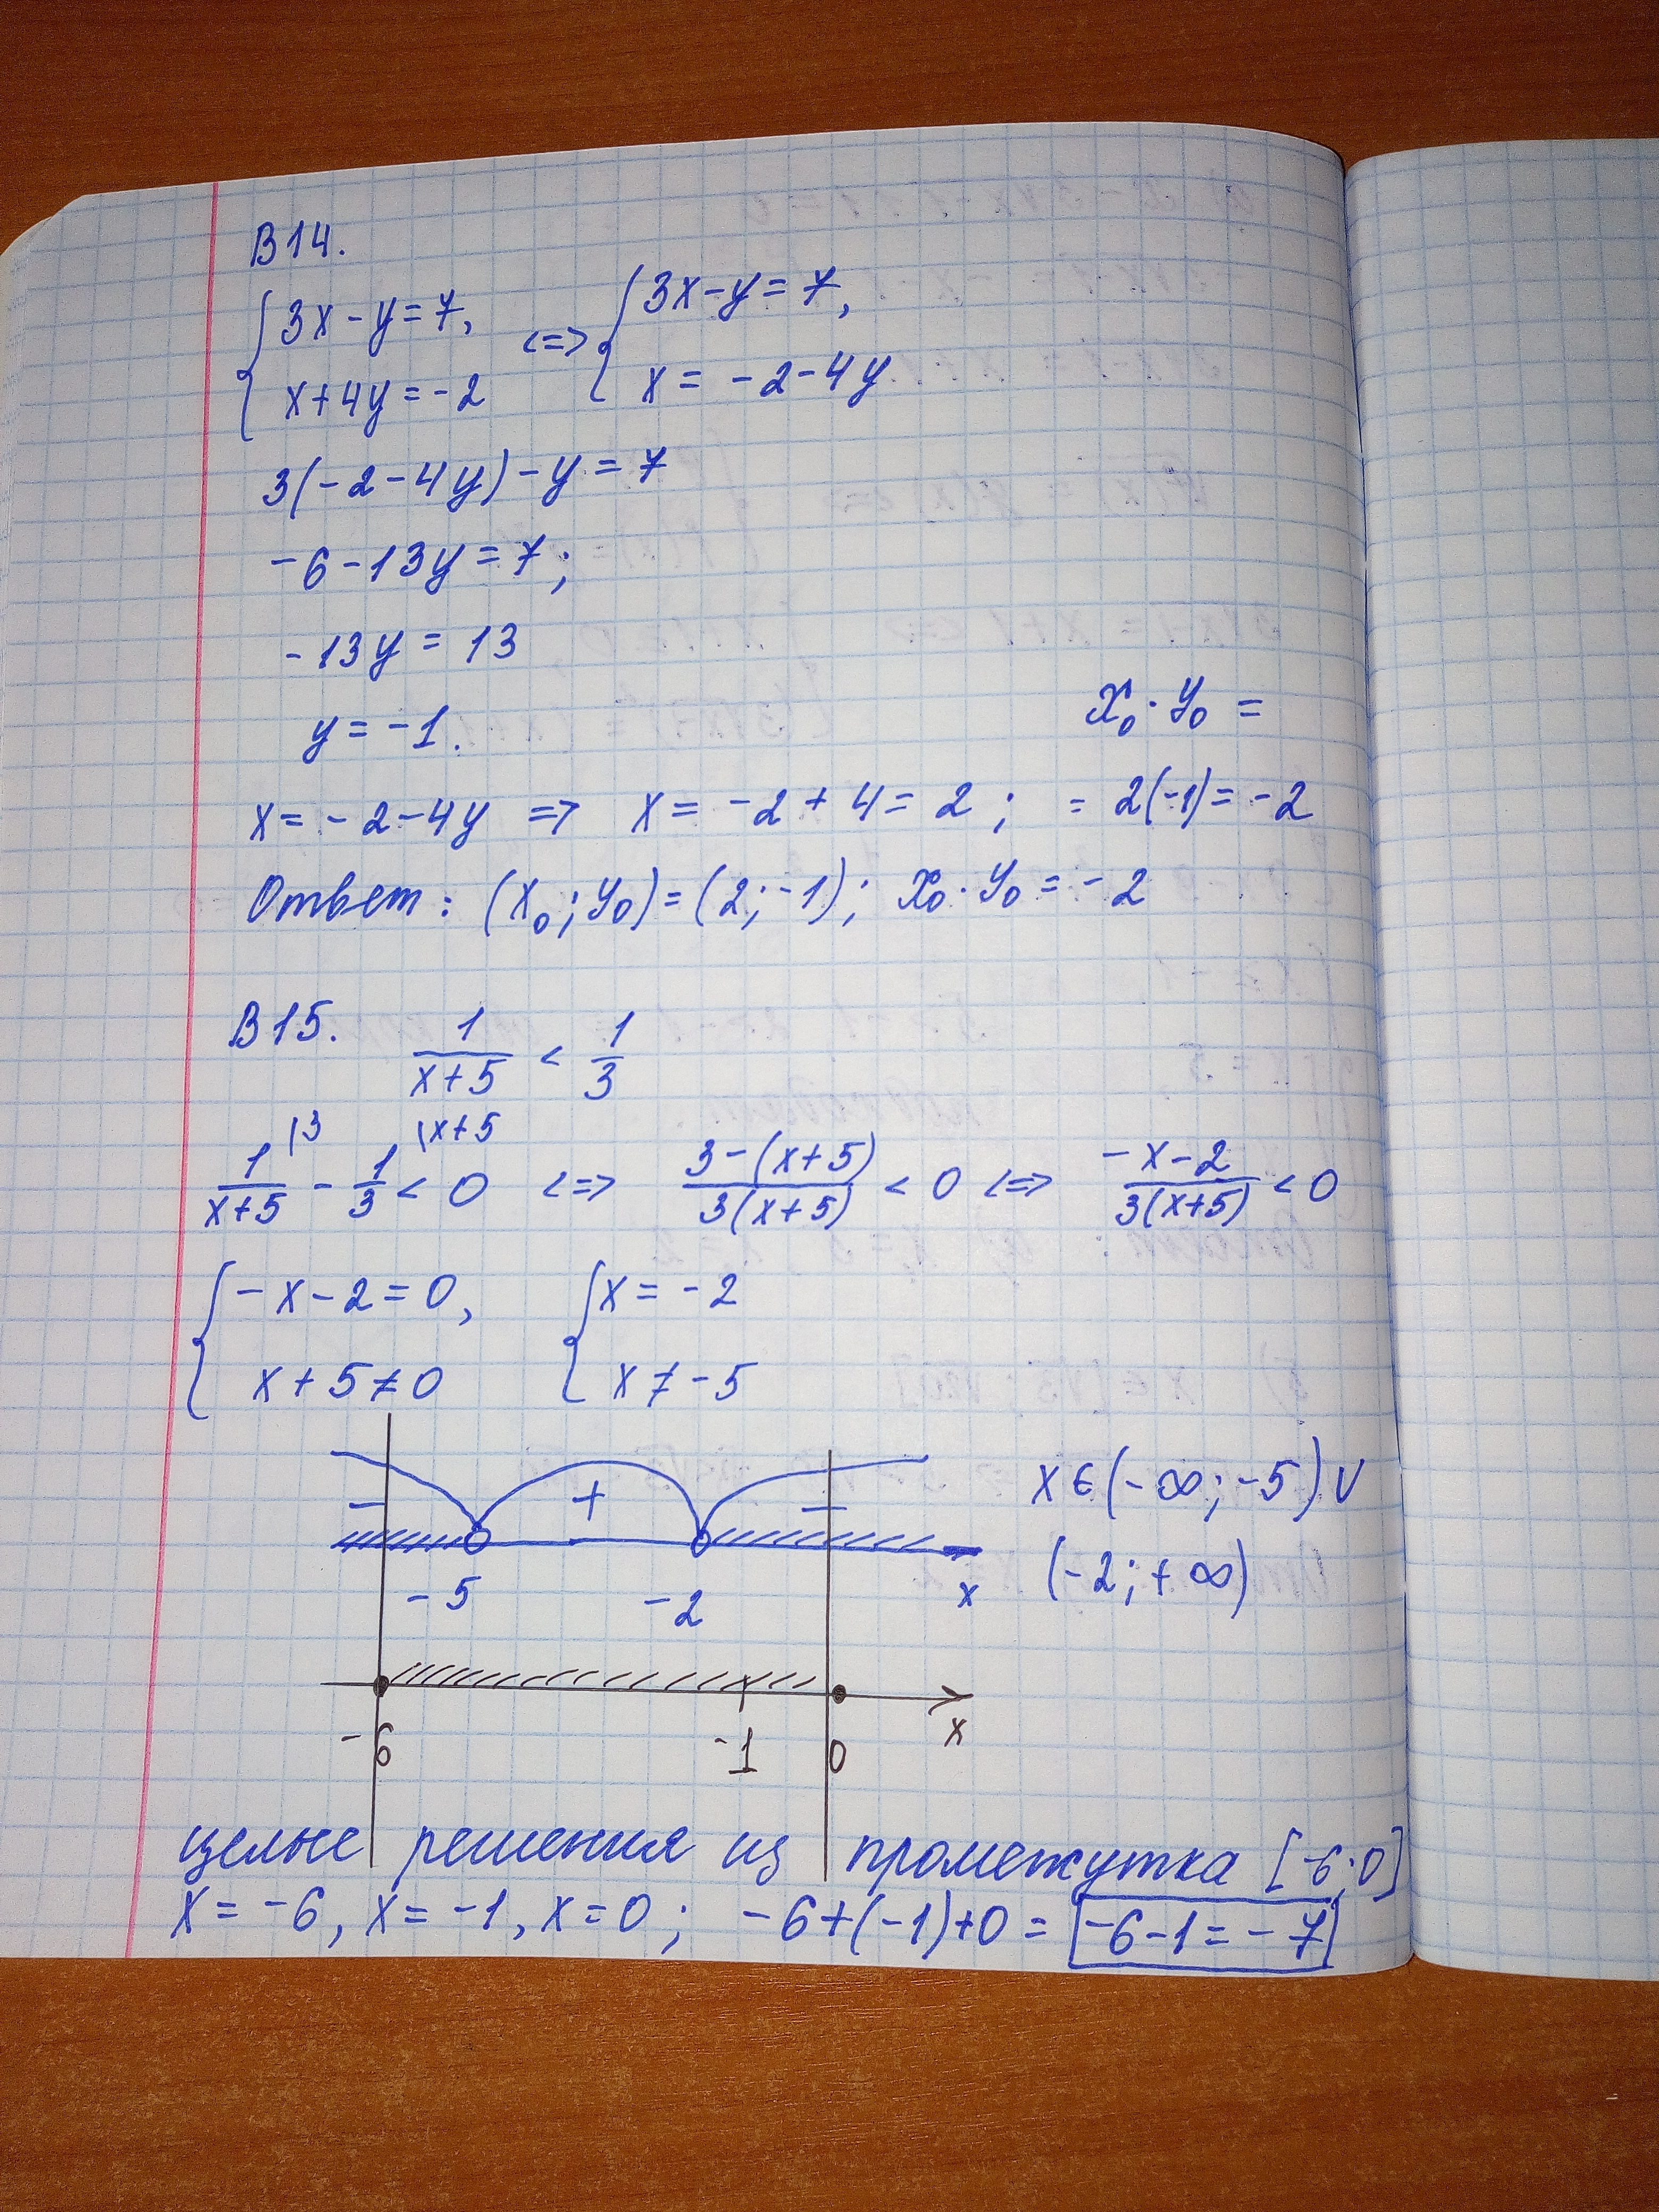 В14.
{3x-y=7, <=> {3x-y=7,
x+4y=-2 x=-2-4y
3(-2-4y)-y=7
-6-13y=7;
-13y=13
y=-1.
x₀·y₀=
x=-2-4y => x=-2+4=2; =2(-1)=-2
Ответ: (x₀;y₀)=(2;-1); x₀·y₀=-2
В15. 1/(x+5) < 1/3
1/(x+5) \3 - 1/3 \x+5 < 0 <=> (3-(x+5))/(3(x+5)) < 0 <=> (-x-2)/(3(x+5)) < 0
{-x-2=0, {x=-2
x+5≠0 x≠-5
- + - x∈(-∞;-5)∪
-5 -2 x (-2;+∞)
-6 -1 0 x
целые решения из промежутка [-6;0]
x=-6, x=-1, x=0; -6+(-1)+0= -6-1=-7